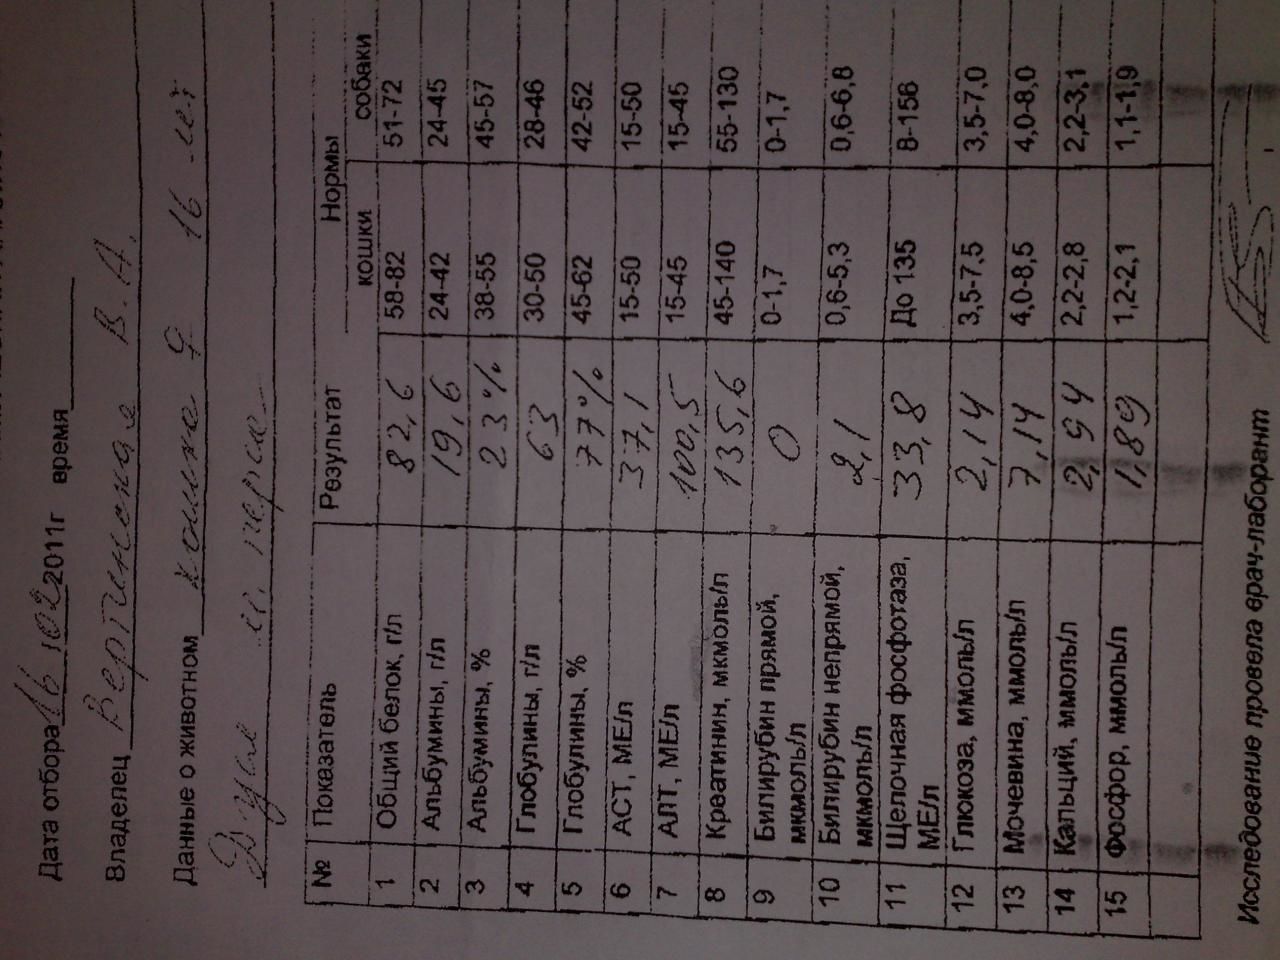 Дата отбора 16 02 2011г время
Владелец Вертинская В. А.
Данные о животном кошка ♀ 16 лет
№ Показатель Результат Нормы
кошки собаки
1 Общий белок, г/л 82,6 58-82 51-72
2 Альбумины, г/л 19,6 24-42 24-45
3 Альбумины, % 23% 38-55 45-57
4 Глобулины, г/л 63 30-50 28-46
5 Глобулины, % 77% 45-62 42-52
6 АСТ, МЕ/л 37,1 15-50 15-50
7 АЛТ, МЕ/л 100,5 15-45 15-45
8 Креатинин, мкмоль/л 135,6 45-140 55-130
9 Билирубин прямой, 0 0-1,7 0-1,7
мкмоль/л
10 Билирубин непрямой, 2,1 0,6-5,3 0,6-6,8
мкмоль/л
11 Щелочная фосфотаза, 33,8 До 135 8-156
МЕ/л
12 Глюкоза, ммоль/л 2,14 3,5-7,5 3,5-7,0
13 Мочевина, ммоль/л 7,14 4,0-8,5 4,0-8,0
14 Кальций, ммоль/л 2,94 2,2-2,8 2,2-3,1
15 Фосфор, ммоль/л 1,89 1,2-2,1 1,1-1,9
Исследование провела врач-лаборант